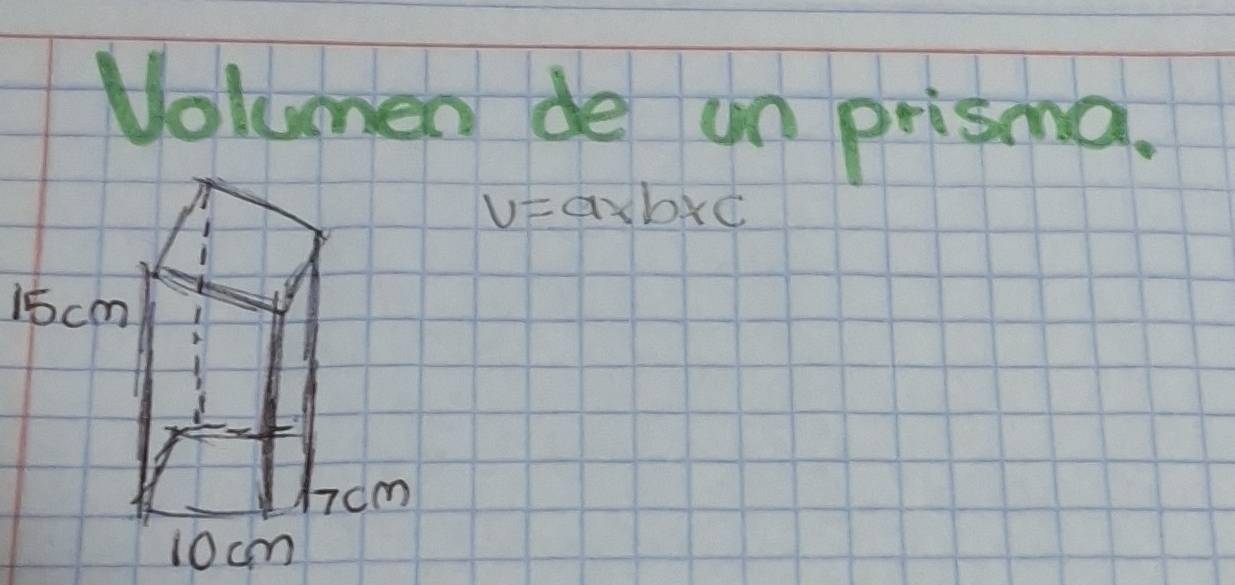 Volumen de un prisma.
V=axbxc
15cm
7cm
10cm